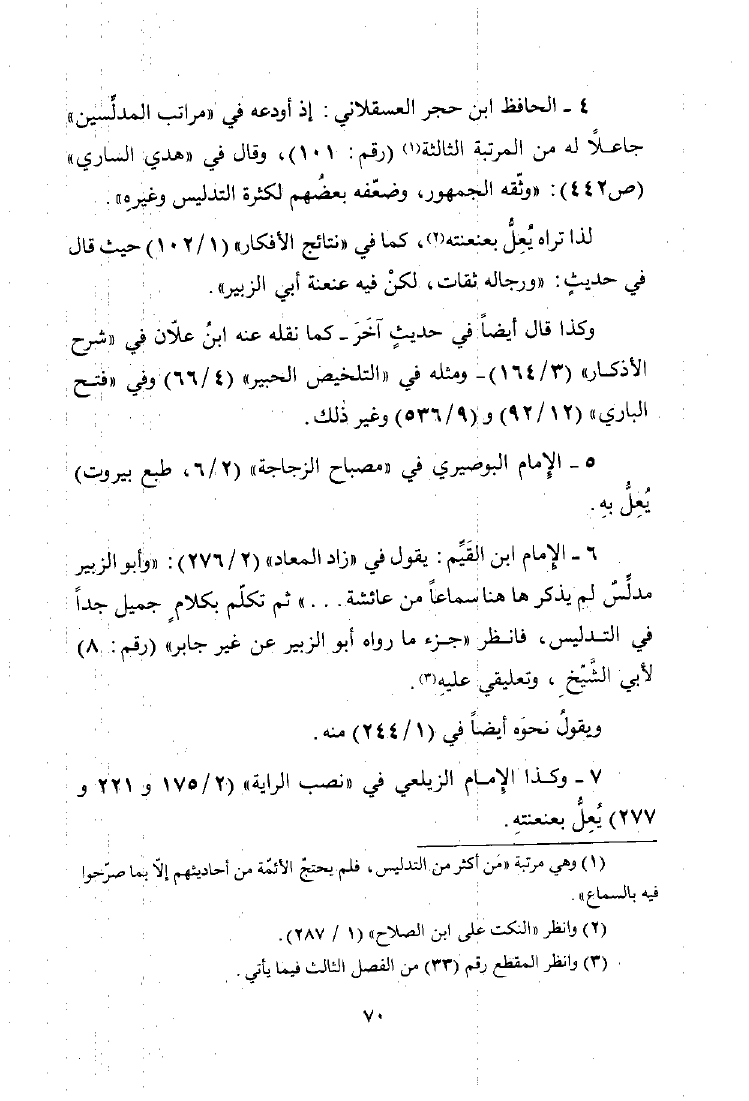 ٤ ـ الحافظ ابن حجر العسقلاني : إذ أودعه في «مراتب المدلِّسين»
جاعلاً له من المرتبة الثالثة(١) (رقم: ١٠١)، وقال في «هدي الساري»
(ص٤٤٢): «وثّقه الجمهور، وضعّفه بعضُهم لكثرة التدليس وغيرهِ» .
لذا تراه يُعِلُّ بعنعنته(٢)، كما في «نتائج الأفكار» (١٠٢/١) حيث قال
في حديثٍ: «ورجاله ثقات، لكنْ فيه عنعنة أبي الزبير» .
وكذا قال أيضاً في حديثٍ آخَرَ ـ كما نقله عنه ابنُ علّان في «شرح
الأذكـار» (١٦٤/٣) ـ ومثله في «التلخيص الحبير» (٦٦/٤) وفي «فتـح
الباري» (٩٢/١٢) و (٥٣٦/٩) وغير ذٰلك .
٥ ـ الإِمام البوصيري في «مصباح الزجاجة» (٦/٢، طبع بيروت)
يُعِلُّ بهِ.
٦ ـ الإِمام ابن القَيِّم : يقول في «زاد المعاد» (٢٧٦/٢): «وأبو الزبير
مدلِّسٌ لم يذكر ها هنا سماعاً من عائشة . . .» ثم تكلّم بكلامٍ جميل جداً
في التـدليس، فانـظر «جـزء ما رواه أبو الزبير عن غير جابر» (رقم: ٨)
لأبي الشَّيْخِ ، وتعليقي عليهِ(٣) .
ويقولُ نحوَه أيضاً في (٢٤٤/١) منه .
٧ ـ وكـذا الإِمـام الزيلعي في «نصب الراية» (١٧٥/٢ و ٢٢١ و
٢٧٧) يُعِلُّ بعنعنتهِ .
(١) وهي مرتبة «مَن أكثر من التدليس، فلم يحتجّ الأئمّة من أحاديثهم إلّا بما صرّحوا
فيه بالسماع» .
(٢) وانظر «النكت على ابن الصلاح» (١ / ٢٨٧).
(٣) وانظر المقطع رقم (٣٣) من الفصل الثالث فيما يأتي .
٧٠